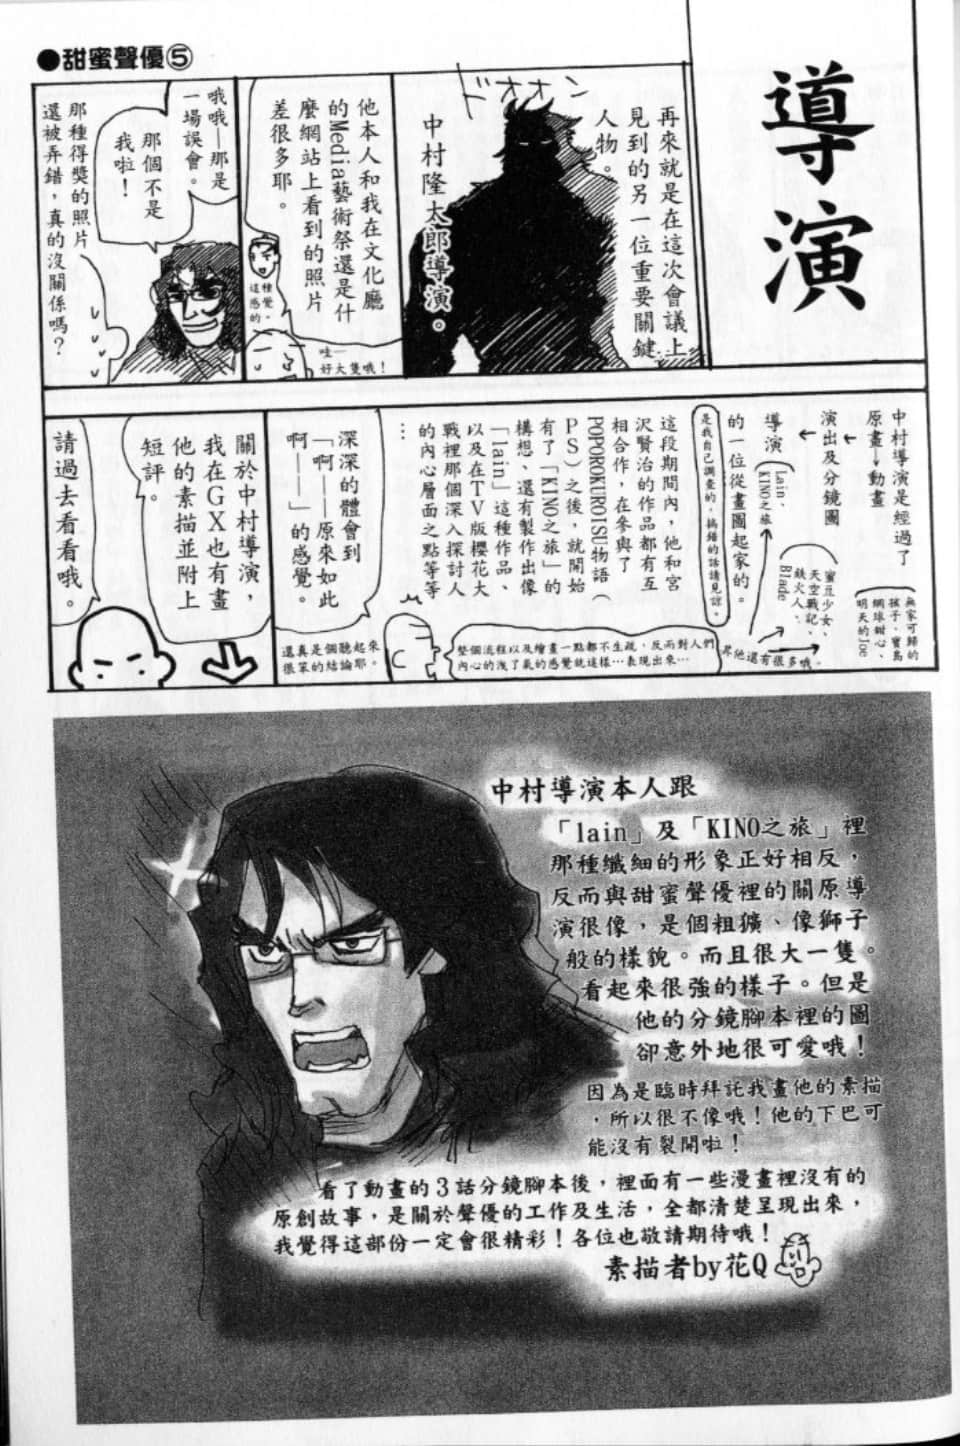 ●甜蜜聲優⑤
導演
再來就是在這次會議上
見到的另一位重要關鍵
人物。
ドオオン
中村隆太郎導演。
他本人和我在文化廳
的Media藝術祭還是什
麼網站上看到的照片
差很多耶。
種覺。
這感的
哇—
好大隻哦!
哦哦—那是
一場誤會。
那個不是
我啦!
那種得獎的照片
還被弄錯,真的沒關係嗎?
中村導演是經過了
原畫→動畫
演出及分鏡圖
導演
(Lain、
KINO之旅)
的一位從畫圖起家的。
無家可歸的
孩子、寶島
網球甜心、
明天的Joe
蜜豆少女、
天空戰記、
鐵火人、
Blade
另他還有很多哦。
是我自己調查的,搞錯的話請見諒。
這段期間內,他和宮
沢賢治的作品都有互
相合作,在參與了
POPOROKUROISU物語(
PS)之後,就開始
有了「KINO之旅」的
構想、還有製作出像
「lain」這種作品、
以及在TV版櫻花大
戰裡那個深入探討人
的內心層面之點等等
…
整個流程以及繪畫一點都不生疏,反而對人們
內心的洩了氣的感覺就這樣…表現出來…
深深的體會到
「啊——原來如此
啊——」的感覺。
還真是個聽起來
很笨的結論耶。
關於中村導演,
我在GX也有畫
他的素描並附上
短評。
請過去看看哦。
中村導演本人跟
「lain」及「KINO之旅」裡
那種纖細的形象正好相反,
反而與甜蜜聲優裡的關原導
演很像,是個粗獷、像獅子
般的樣貌。而且很大一隻。
看起來很強的樣子。但是
他的分鏡腳本裡的圖
卻意外地很可愛哦!
因為是臨時拜託我畫他的素描
,所以很不像哦!他的下巴可
能沒有裂開啦!
看了動畫的3話分鏡腳本後,裡面有一些漫畫裡沒有的
原創故事,是關於聲優的工作及生活,全都清楚呈現出來,
我覺得這部份一定會很精彩!各位也敬請期待哦!
素描者by花Q